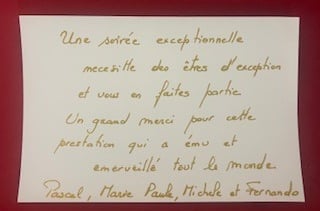 Une soirée exceptionnelle
necesitte des êtres d'exception
et vous en faites partie
Un grand merci pour cette
prestation qui a ému et
emerveillé tout le monde
Pascal, Marie Paule, Michele et Fernando